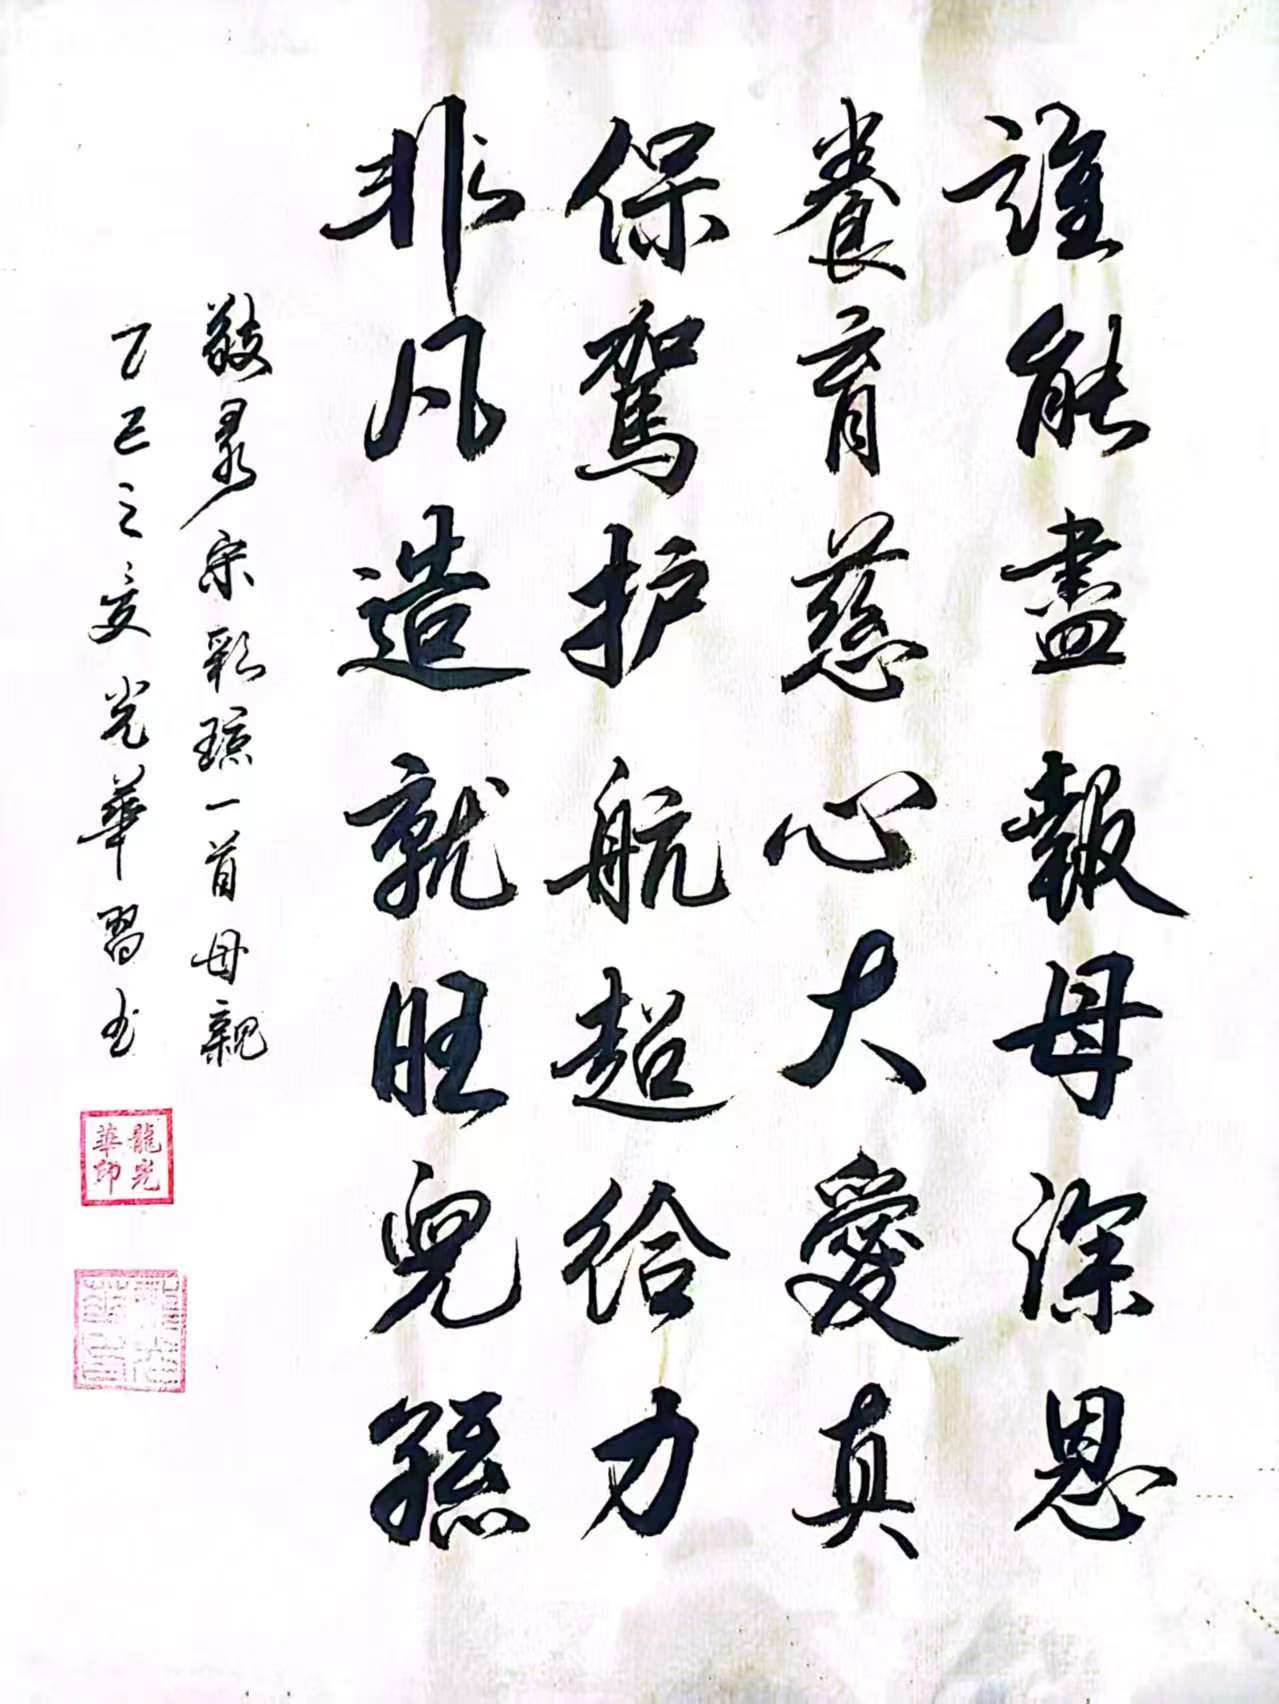 誰能盡報母深恩
養育慈心大愛真
保駕护航超给力
非凡造就旺兒孫
敬录宋彩琼一首母親
乙巳之夏光華習书
龍光華印